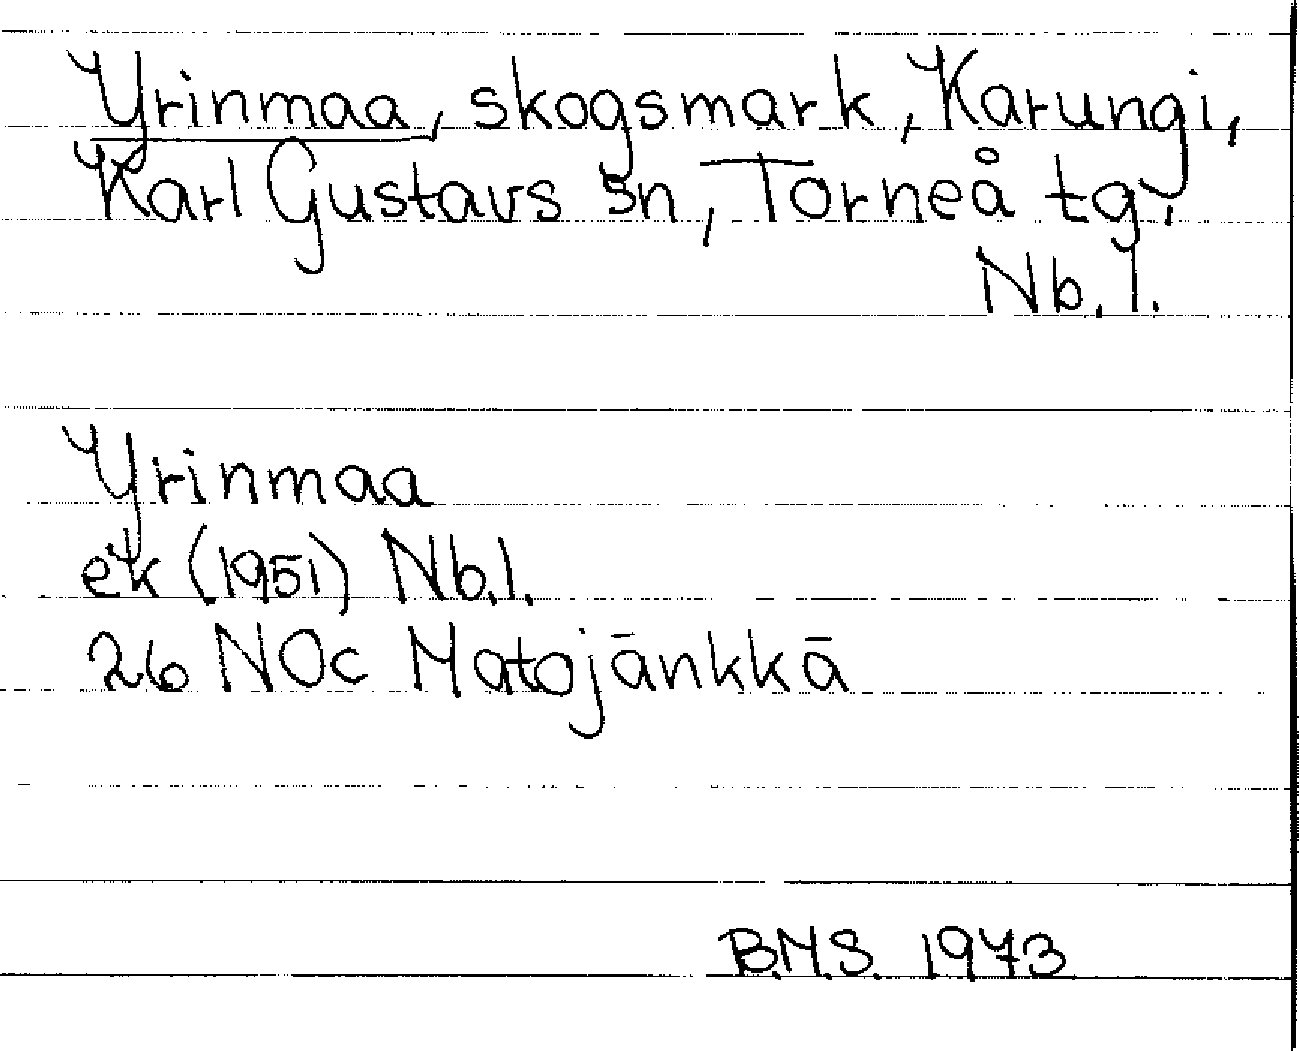 Yrinmaa, skogsmark, Karungi,
Karl Gustavs sn, Torneå tg,
Nb. l.
Yrinmaa
ek (1951) Nb.l.
26 NOc Matojänkkä
B.M.S. 1973